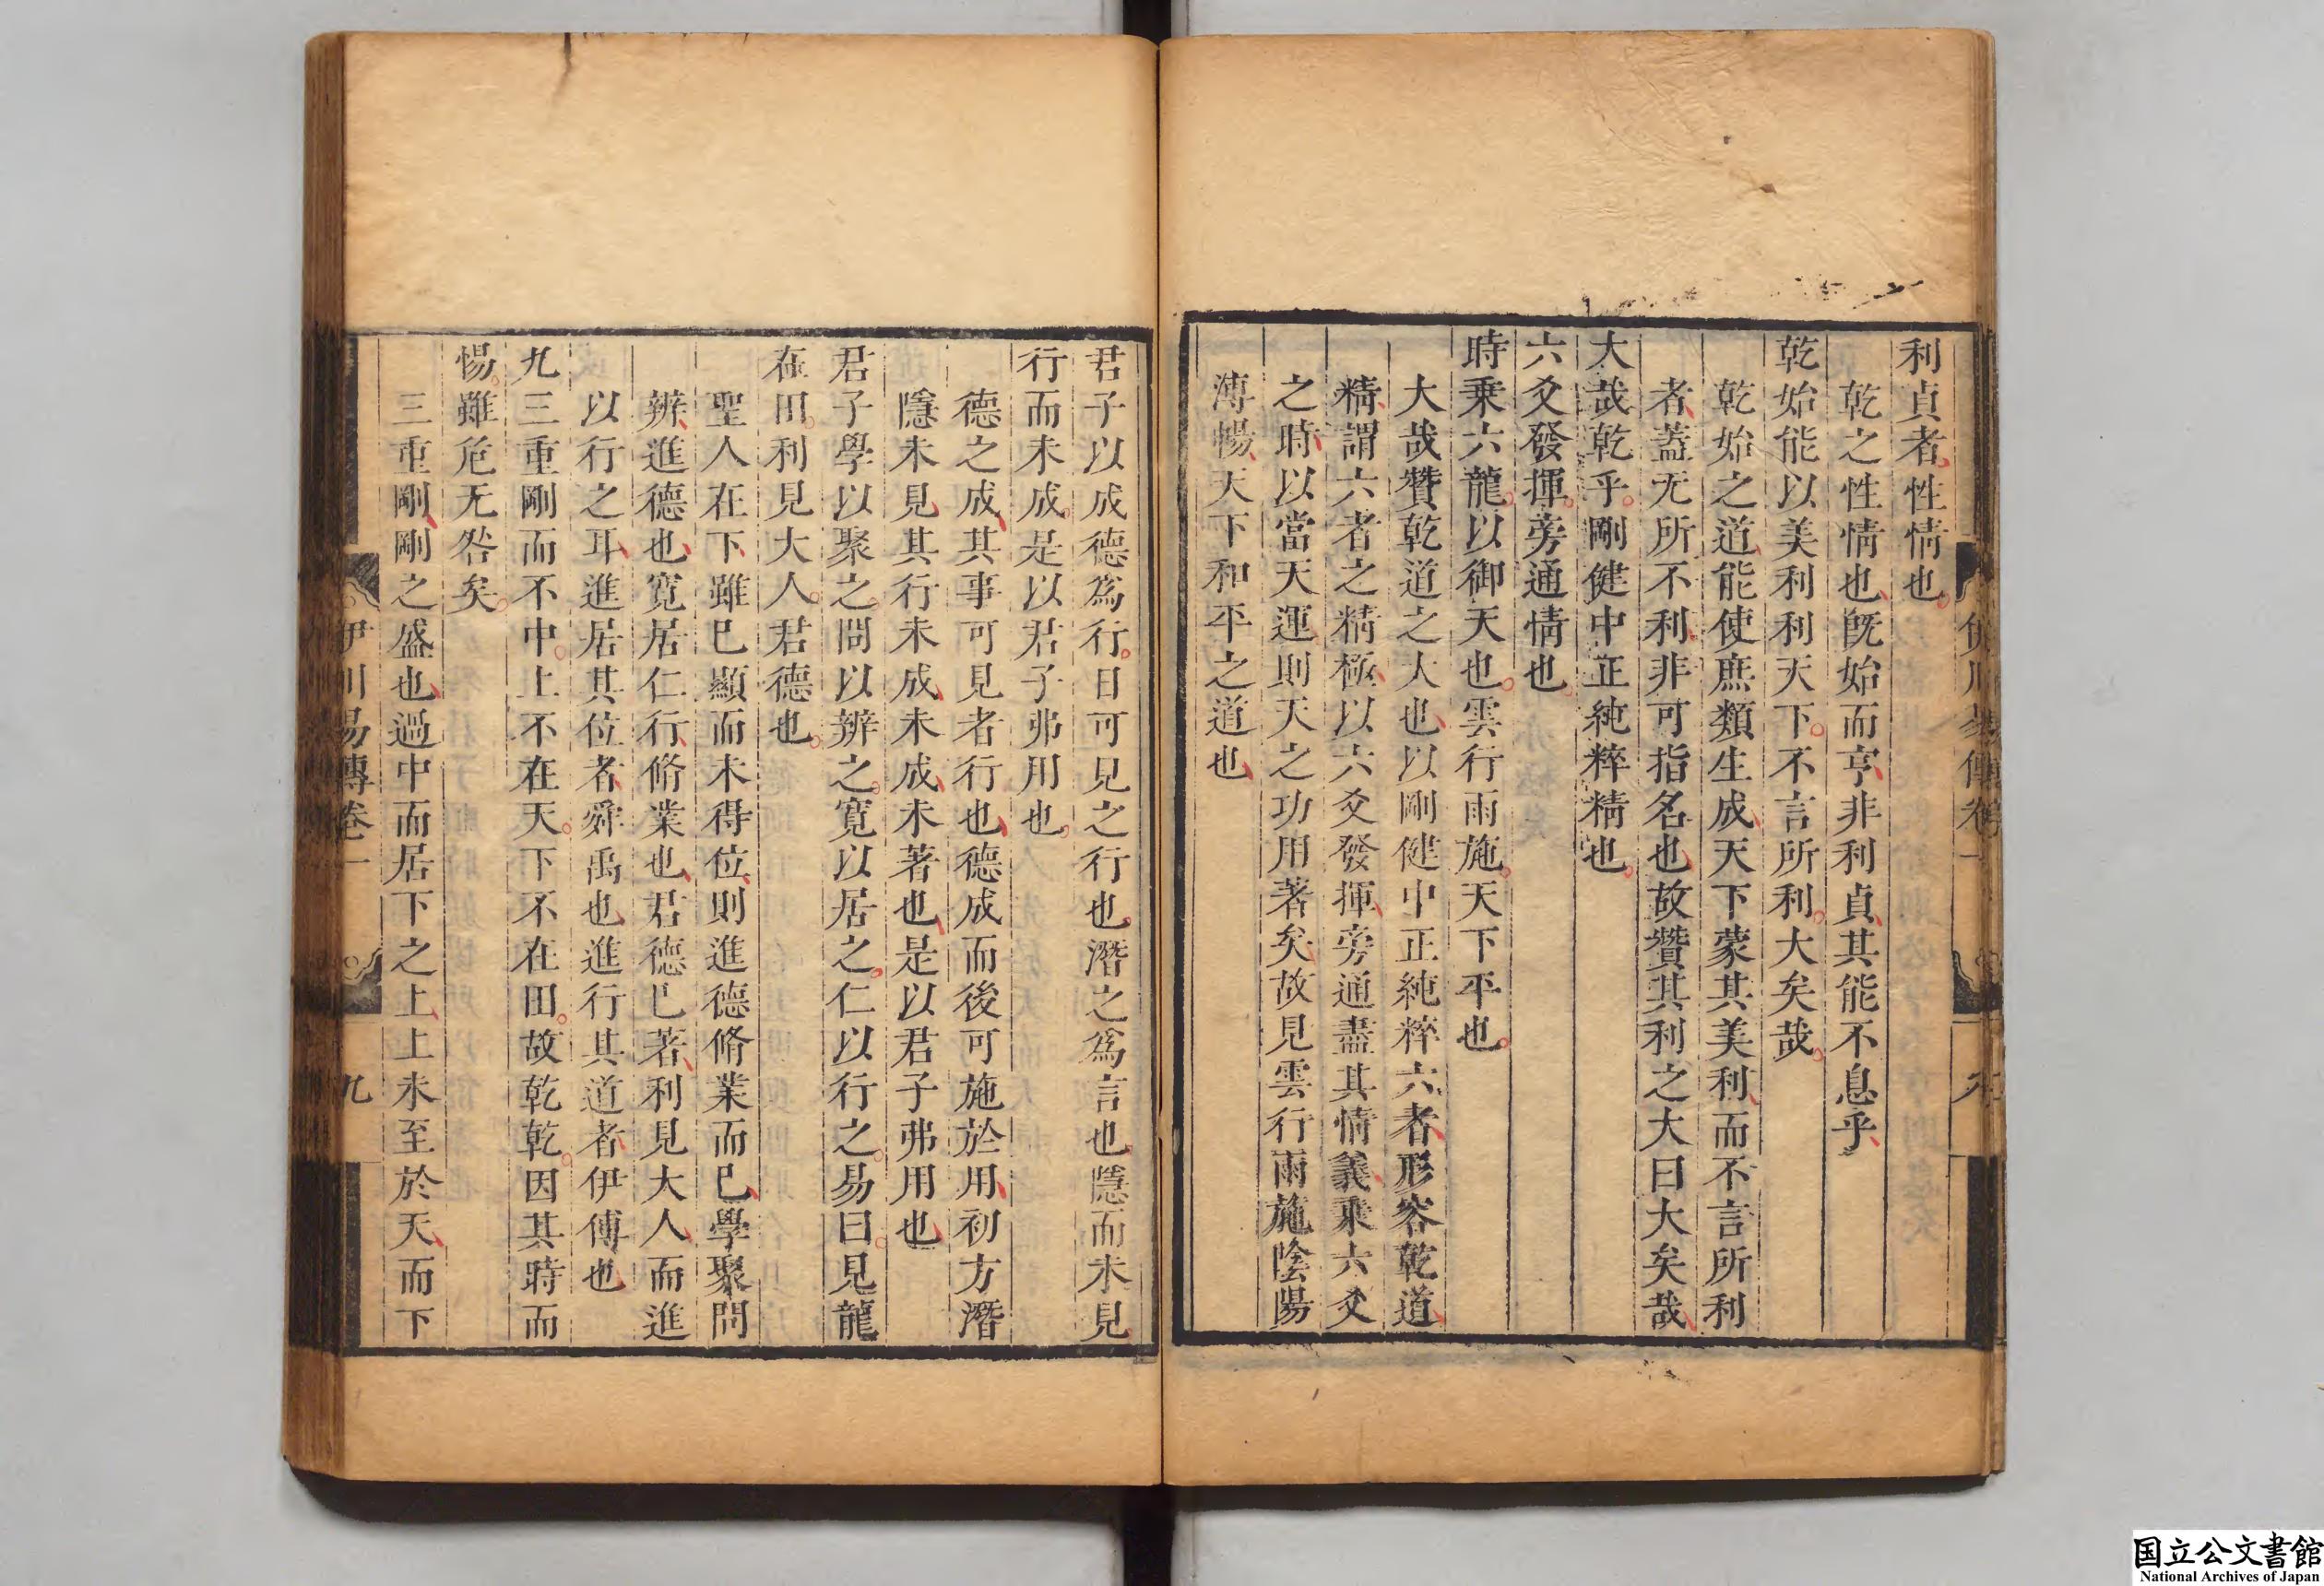 利貞者性情也
乾之性情也既始而亨非利貞其能不息乎
乾始能以美利利天下不言所利大矣哉
乾始之道能使庶類生成天下蒙其美利而不言所利
者蓋无所不利非可指名也故贊其利之大曰大矣哉
大哉乾乎剛健中正純粹精也
六爻發揮旁通情也
時乗六龍以御天也雲行雨施天下平也
大哉贊乾道之大也以剛健中正純粹六者形容乾道
精謂六者之精極以六爻發揮旁通盡其情義乗六爻
之時以當天運則天之功用著矣故見雲行雨施陰陽
溥暢天下和平之道也
君子以成德爲行日可見之行也潛之爲言也隱而未見
行而未成是以君子弗用也
德之成其事可見者行也德成而後可施於用初方潛
隱未見其行未成未成未著也是以君子弗用也
君子學以聚之問以辨之寛以居之仁以行之易曰見龍
在田利見大人君德也
聖人在下雖巳顯而未得位則進德脩業而巳學聚問
辨進德也寛居仁行脩業也君德巳著利見大人而進
以行之耳進居其位者舜禹也進行其道者伊傅也
九三重剛而不中上不在天下不在田故乾乾因其時而
惕雖危无咎矣
三重剛剛之盛也過中而居下之上上未至於天而下
伊川易傳卷一
九
国立公文書館
National Archives of Japan